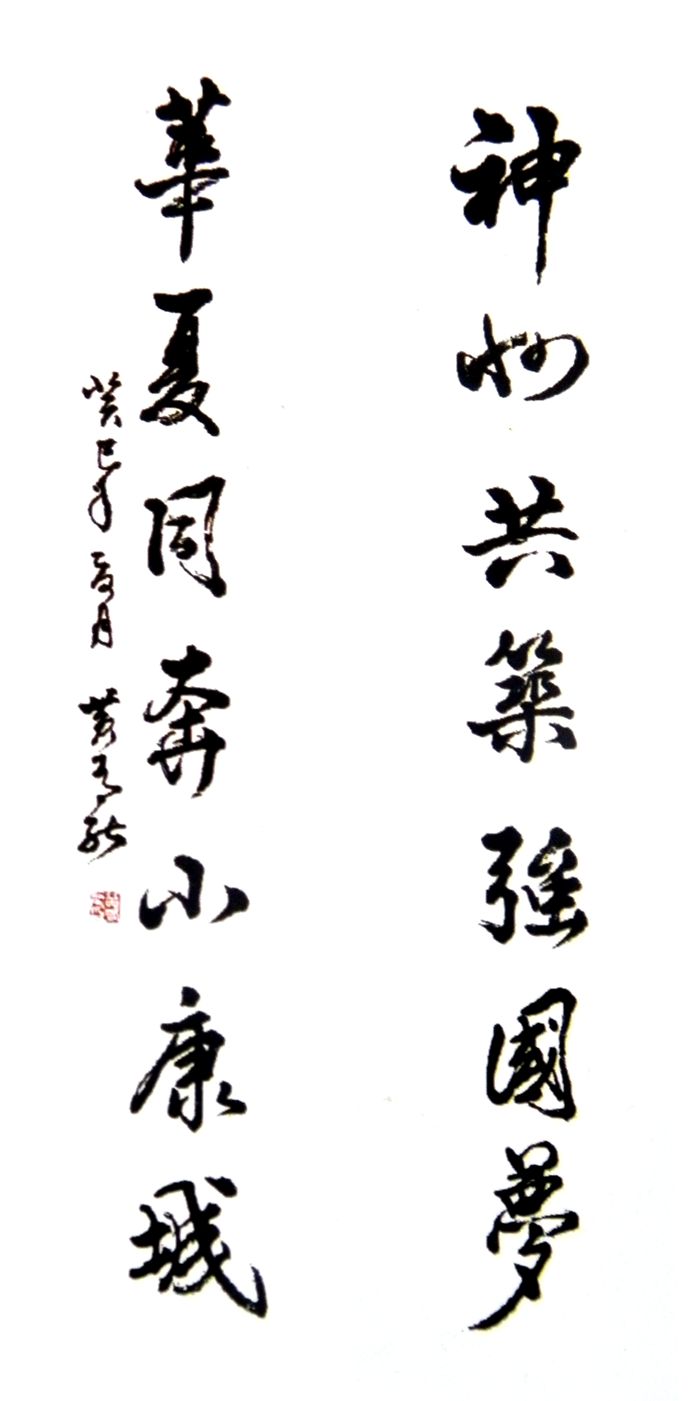 神州共築强國夢
華夏同奔小康城
癸巳年夏月 黄有能